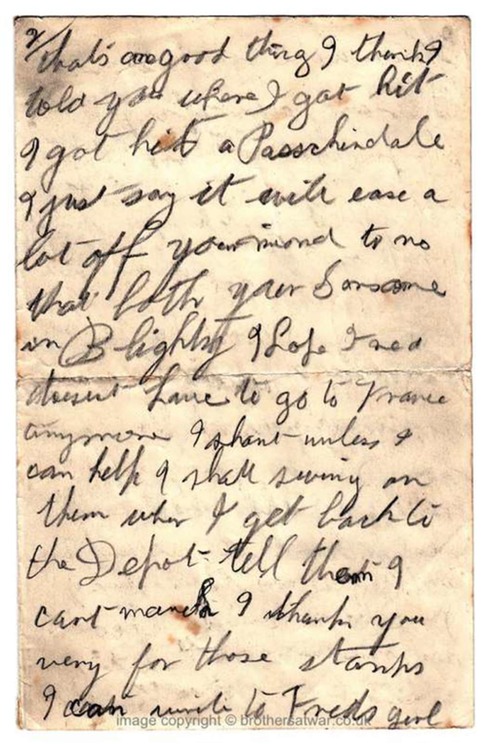 2/
thats one good thing I think I
told you where I got hit
I got hit a Passchindale
I just say it will ease a
lot off your mind to no
that both your Sons are
in Blighty I hope Fred
doesent have to go to France
anymore I shant unless I
can help I shall swing on
them when I get back to
the Depot tell them I
cant march I thank you
very for those stamps
I can write to Freds girl
image copyright © brothersatwar.co.uk